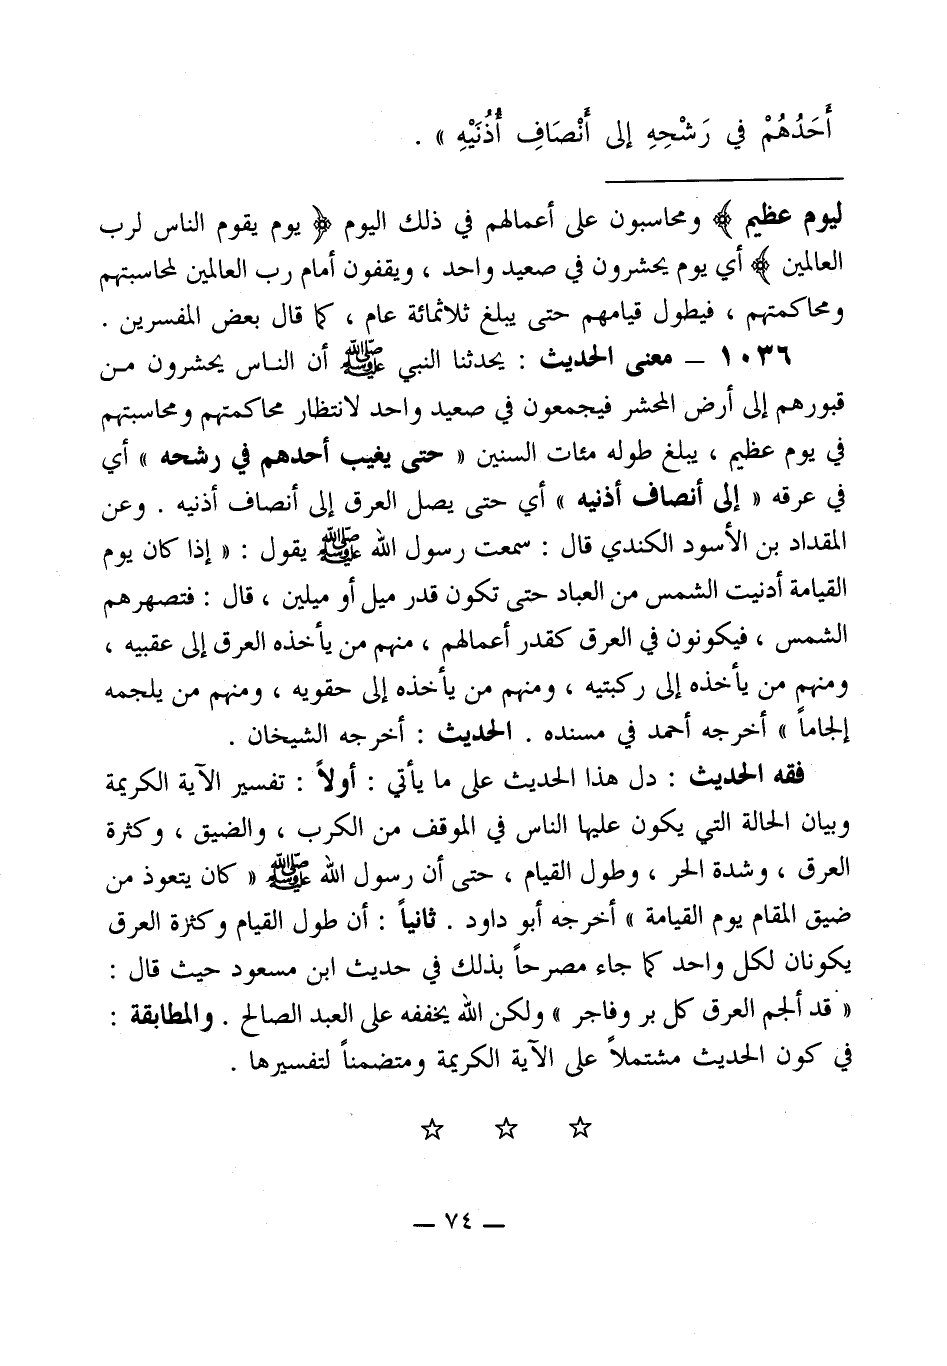 أَحَدُهُمْ في رَشْحِهِ إلى أَنْصَافِ أُذُنَيْهِ » .
ليوم عظيم ﴾ ومحاسبون على أعمالهم في ذلك اليوم ﴿ يوم يقوم الناس لرب
العالمين ﴾ أي يوم يحشرون في صعيد واحد ، ويقفون أمام رب العالمين لمحاسبتهم
ومحاكمتهم ، فيطول قيامهم حتى يبلغ ثلاثمائة عام ، كما قال بعض المفسرين .
١٠٣٦ – معنى الحديث : يحدثنا النبي ﷺ أن الناس يحشرون من
قبورهم إلى أرض المحشر فيجمعون في صعيد واحد لانتظار محاكمتهم ومحاسبتهم
في يوم عظيم ، يبلغ طوله مئات السنين « حتى يغيب أحدهم في رشحه » أي
في عرقه « إلى أنصاف أذنيه » أي حتى يصل العرق إلى أنصاف أذنيه . وعن
المقداد بن الأسود الكندي قال : سمعت رسول الله ﷺ يقول : « إذا كان يوم
القيامة أدنيت الشمس من العباد حتى تكون قدر ميل أو ميلين ، قال : فتصهرهم
الشمس ، فيكونون في العرق كقدر أعمالهم ، منهم من يأخذه العرق إلى عقبيه ،
ومنهم من يأخذه إلى ركبتيه ، ومنهم من يأخذه إلى حقويه ، ومنهم من يلجمه
إلجاماً » أخرجه أحمد في مسنده . الحديث : أخرجه الشيخان .
فقه الحديث : دل هذا الحديث على ما يأتي : أولاً : تفسير الآية الكريمة
وبيان الحالة التي يكون عليها الناس في الموقف من الكرب ، والضيق ، وكثرة
العرق ، وشدة الحر ، وطول القيام ، حتى أن رسول الله ﷺ « كان يتعوذ من
ضيق المقام يوم القيامة » أخرجه أبو داود . ثانياً : أن طول القيام وكثرة العرق
يكونان لكل واحد كما جاء مصرحاً بذلك في حديث ابن مسعود حيث قال :
« قد ألجم العرق كل بر وفاجر » ولكن الله يخففه على العبد الصالح . والمطابقة :
في كون الحديث مشتملاً على الآية الكريمة ومتضمناً لتفسيرها .
☆ ☆ ☆
– ٧٤ –